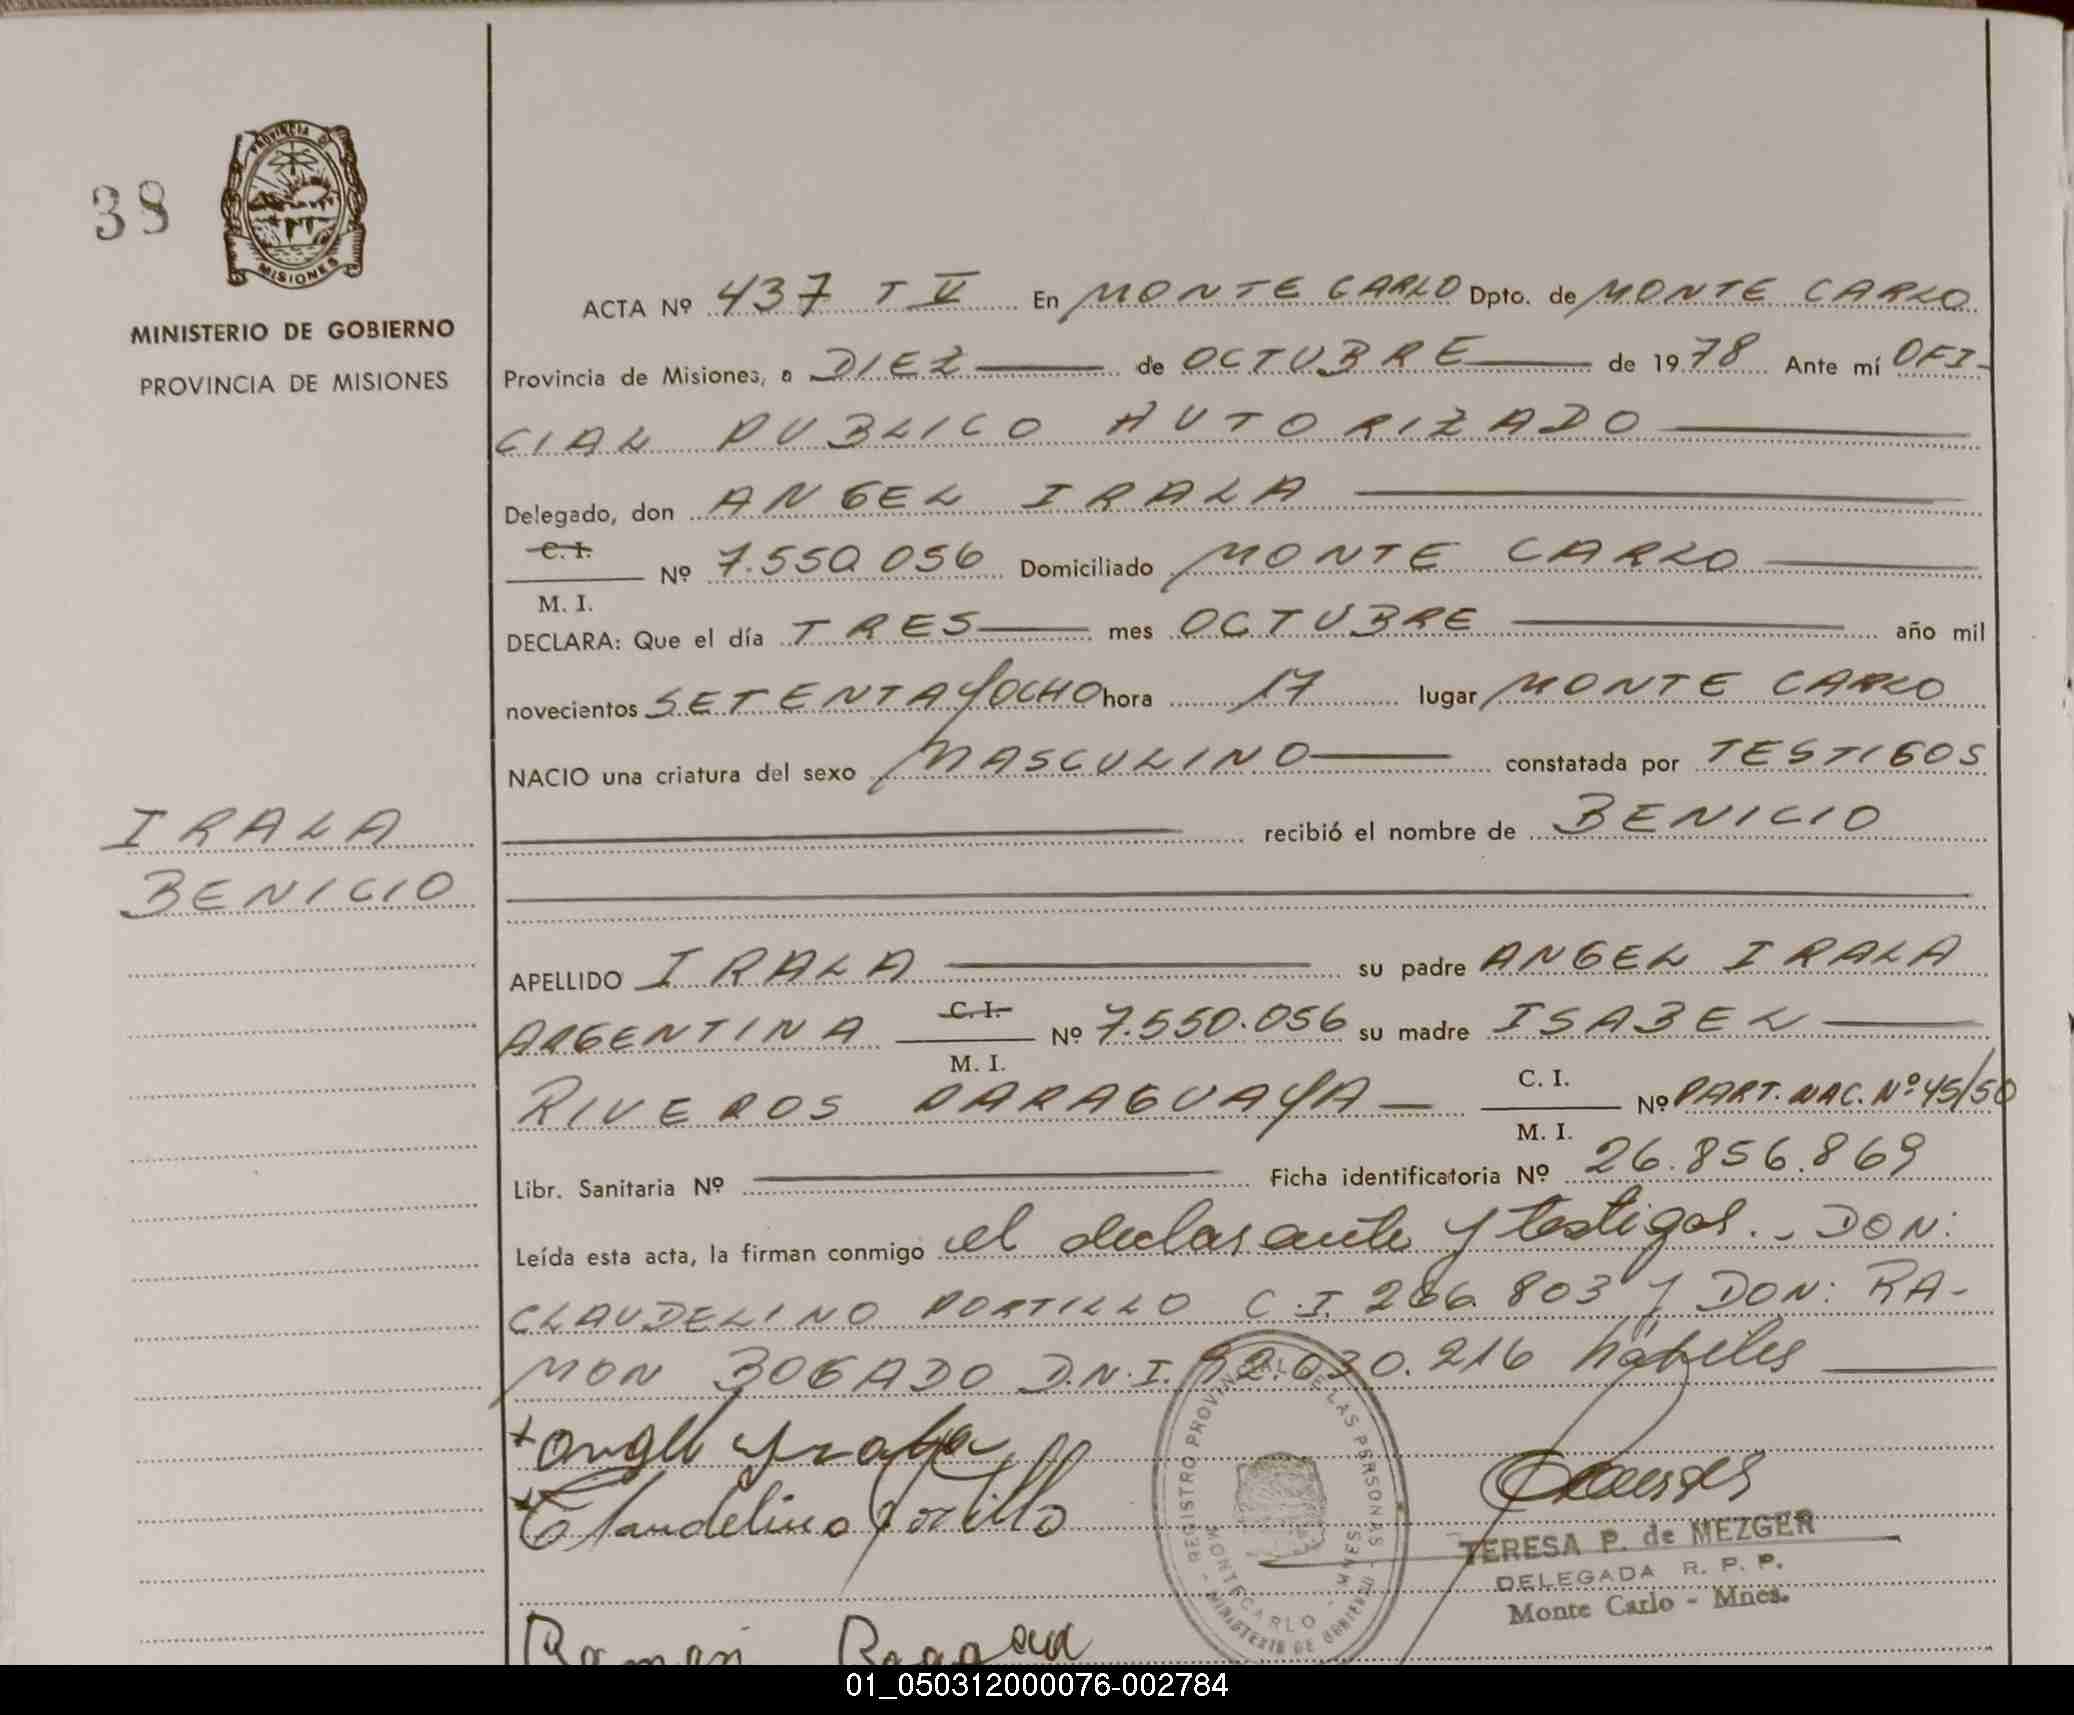 38
PROVINCIA DE
MISIONES
MINISTERIO DE GOBIERNO
PROVINCIA DE MISIONES
IRALA
BENICIO
ACTA Nº 437 T V En MONTE CARLO Dpto. de MONTE CARLO
Provincia de Misiones, a DIEZ de OCTUBRE de 1978 Ante mí OFI-
CIAL PUBLICO AUTORIZADO
Delegado, don ANGEL IRALA
C. I.
Nº 7.550.056 Domiciliado MONTE CARLO
M. I.
DECLARA: Que el día TRES mes OCTUBRE año mil
novecientos SETENTA Y OCHO hora 17 lugar MONTE CARLO
NACIO una criatura del sexo MASCULINO constatada por TESTIGOS
recibió el nombre de BENICIO
APELLIDO IRALA su padre ANGEL IRALA
ARGENTINA C. I. Nº 7.550.056 su madre ISABEL
M. I.
RIVEROS PARAGUAYA C. I. Nº PART. NAC. Nº 45/50
M. I.
Libr. Sanitaria Nº Ficha identificatoria Nº 26.856.869
Leída esta acta, la firman conmigo el declarante y testigos.- DON:
CLAUDELINO PORTILLO C.I. 266.803 Y DON: RA-
MON BOGADO D.N.I. 92.030.216 hábiles
Angel Yrala
Claudelino Portillo
REGISTRO PROVINCIAL DE LAS PERSONAS
MONTECARLO - MNES
MINISTERIO DE GOBIERNO
TERESA P. de MEZGER
DELEGADA R. P. P.
Monte Carlo - Mnes.
Ramon Bogado
01_050312000076-002784